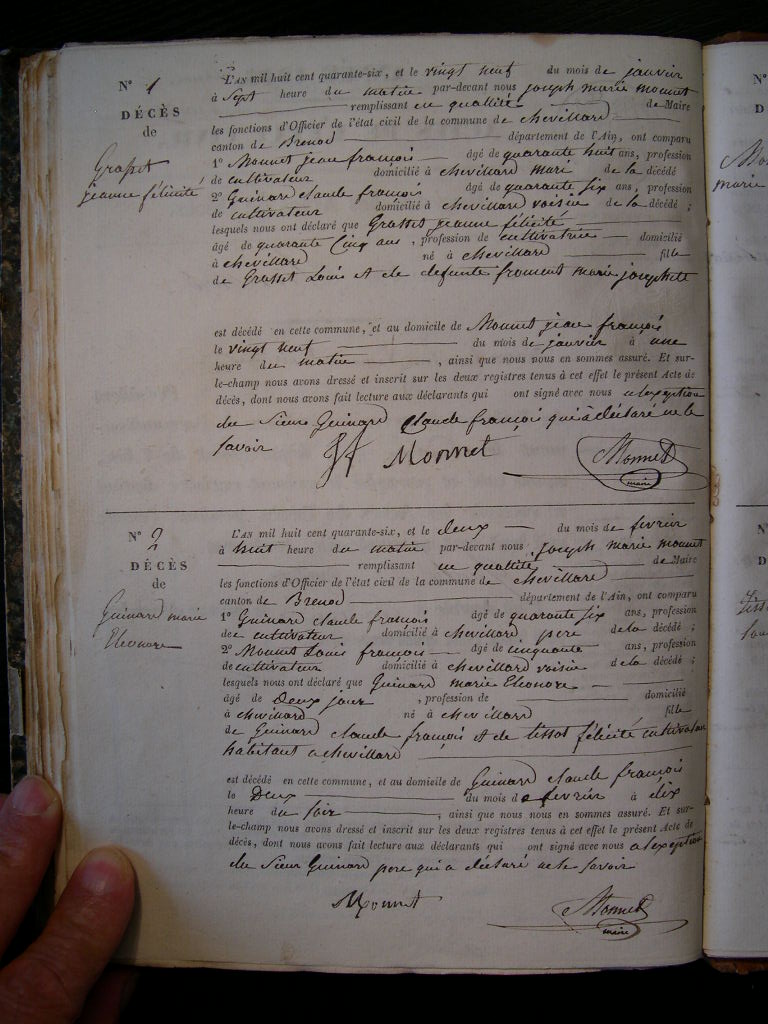 N° 1
DÉCÈS
de
Grasset
jeanne félicité
L'AN mil huit cent quarante-six, et le vingt neuf du mois de janvier
à Sept heure du matin par-devant nous joseph marie monnet
remplissant en quallité de Maire
les fonctions d'Officier de l'état civil de la commune de chevillard
canton de Brenod département de l'Ain, ont comparu
1° Monnet jean françois âgé de quarante huit ans, profession
de cultivateur domicilié à chevillard mari de la décédé
2° Guinard claude françois âgé de quarante six ans, profession
de cultivateur domicilié à chevillard voisin de la décédé ;
lesquels nous ont déclaré que Grasset jeanne félicité
âgé de quarante Cinq ans, profession de cultivatrice domicilié
à chevillard né à chevillard fille
de Grasset Louis et de defunte froment marie josephete
est décédé en cette commune, et au domicile de Monnet jean françois
le vingt neuf du mois de janvier à une
heure du matin, ainsi que nous nous en sommes assuré. Et sur-
le-champ nous avons dressé et inscrit sur les deux registres tenus à cet effet le présent Acte de
décès, dont nous avons fait lecture aux déclarants qui ont signé avec nous a lexeption
du Sieur Guinard Claude françois qui à déclaré ne le
savoir
Monnet Monnet
maire
N° 2
DÉCÈS
de
Guinard marie
Eleonore
L'AN mil huit cent quarante-six, et le deux du mois de fevrier
à huit heure du matin par-devant nous joseph marie monnet
remplissant en quallité de Maire
les fonctions d'Officier de l'état civil de la commune de chevillard
canton de Brenod département de l'Ain, ont comparu
1° Guinard claude françois âgé de quarante six ans, profession
de cultivateur domicilié à chevillard pere de la décédé ;
2° Monnet Louis françois âgé de cinquante ans, profession
de cultivateur domicilié à chevillard voisin de la décédé ;
lesquels nous ont déclaré que Guinard marie Eleonore
âgé de Deux jour, profession de domicilié
à chevillard né à chevillard fille
de Guinard claude françois et de tissot félicité cultivateur
habitant a chevillard
est décédé en cette commune, et au domicile de Guinard claude françois
le Deux du mois de fevrier à dix
heure du soir, ainsi que nous nous en sommes assuré. Et sur-
le-champ nous avons dressé et inscrit sur les deux registres tenus à cet effet le présent Acte de
décès, dont nous avons fait lecture aux déclarants qui ont signé avec nous a lexeption
du Sieur Guinard pere qui a déclaré ne le savoir
Monnet Monnet
maire
N°
D
marie
N°
D